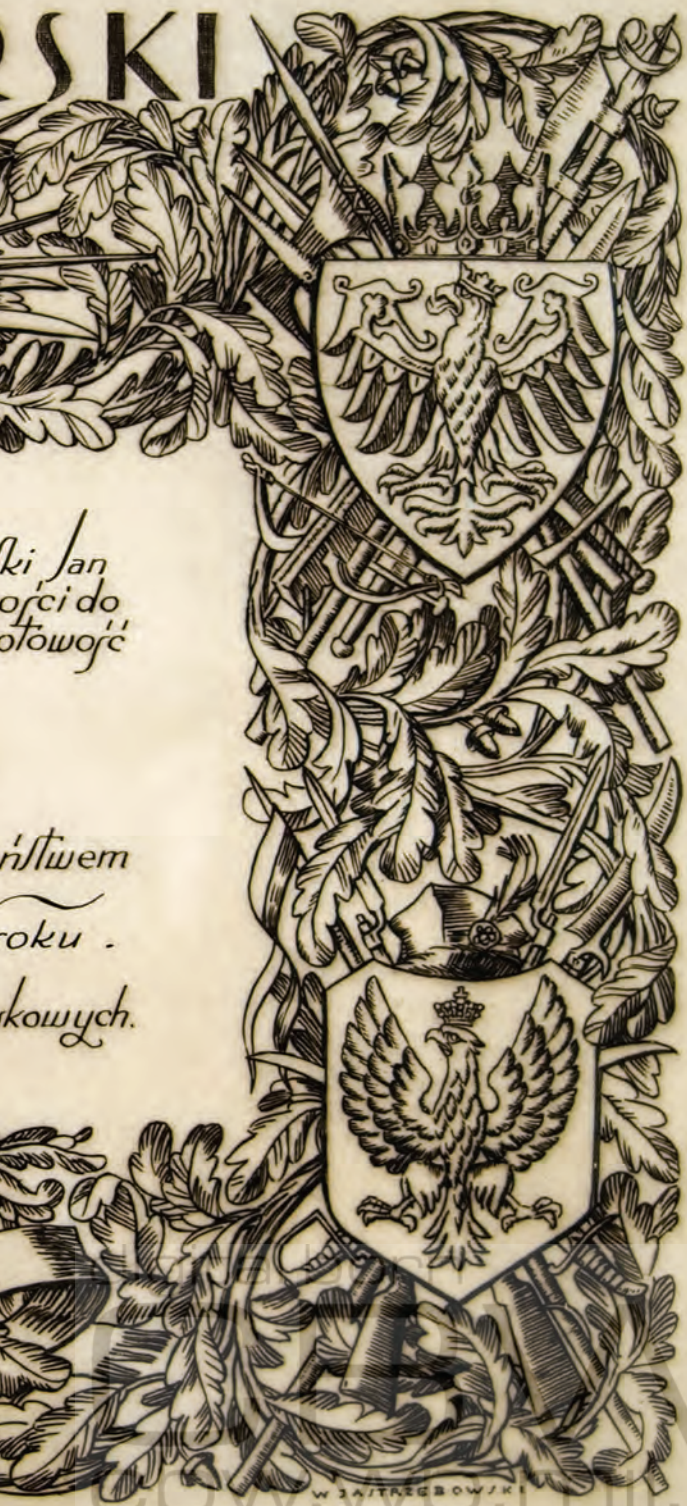 RSKI
ſki Jan
oſci do
otowość
ńſtwem
roku .
kowych.
W JASTRZĘBOWSKI